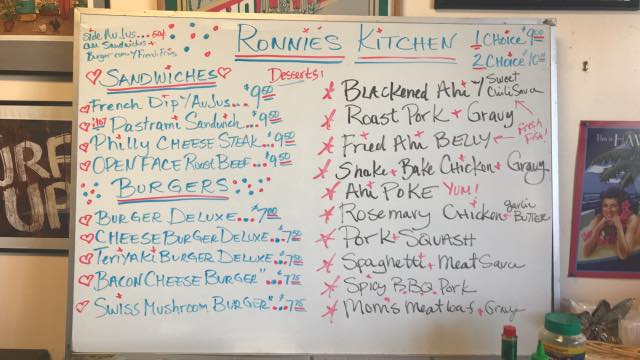 Side Au Jus... 50¢
all Sandwiches +
Burger come w/ French Fries
RONNIE'S KITCHEN
1 CHOICE $9.00
2 CHOICE $10.00
SANDWICHES
Desserts!
French Dip w/ Au Jus... $9.50
Hot Pastrami Sandwich... $9.50
Philly CHEESE STEAK... $9.50
OPEN FACE Roast BEEF... $9.50
BURGERS
BURGER DELUXE... $7.00
CHEESE BURGER DELUXE... $7.50
TeriyAki BURGER DELUXE... $7.50
BACON CHEESE BURGER " $7.75
SWISS MUSHROOM BURGER " $7.75
BLACKENED Ahi w/ Sweet Chili Sauce
Roast Pork + Gravy
Fried Ahi BELLY
Fresh Fish!
Shake + Bake Chicken + Gravy
Ahi POKE YUM!
Rosemary Chicken garlic BUTTER
PORK + SQUASH
Spaghetti + Meat Sauce
Spicy B.B.Q. Pork
Mom's meatloaf + Gravy
URF
UP
This is
HAWAII